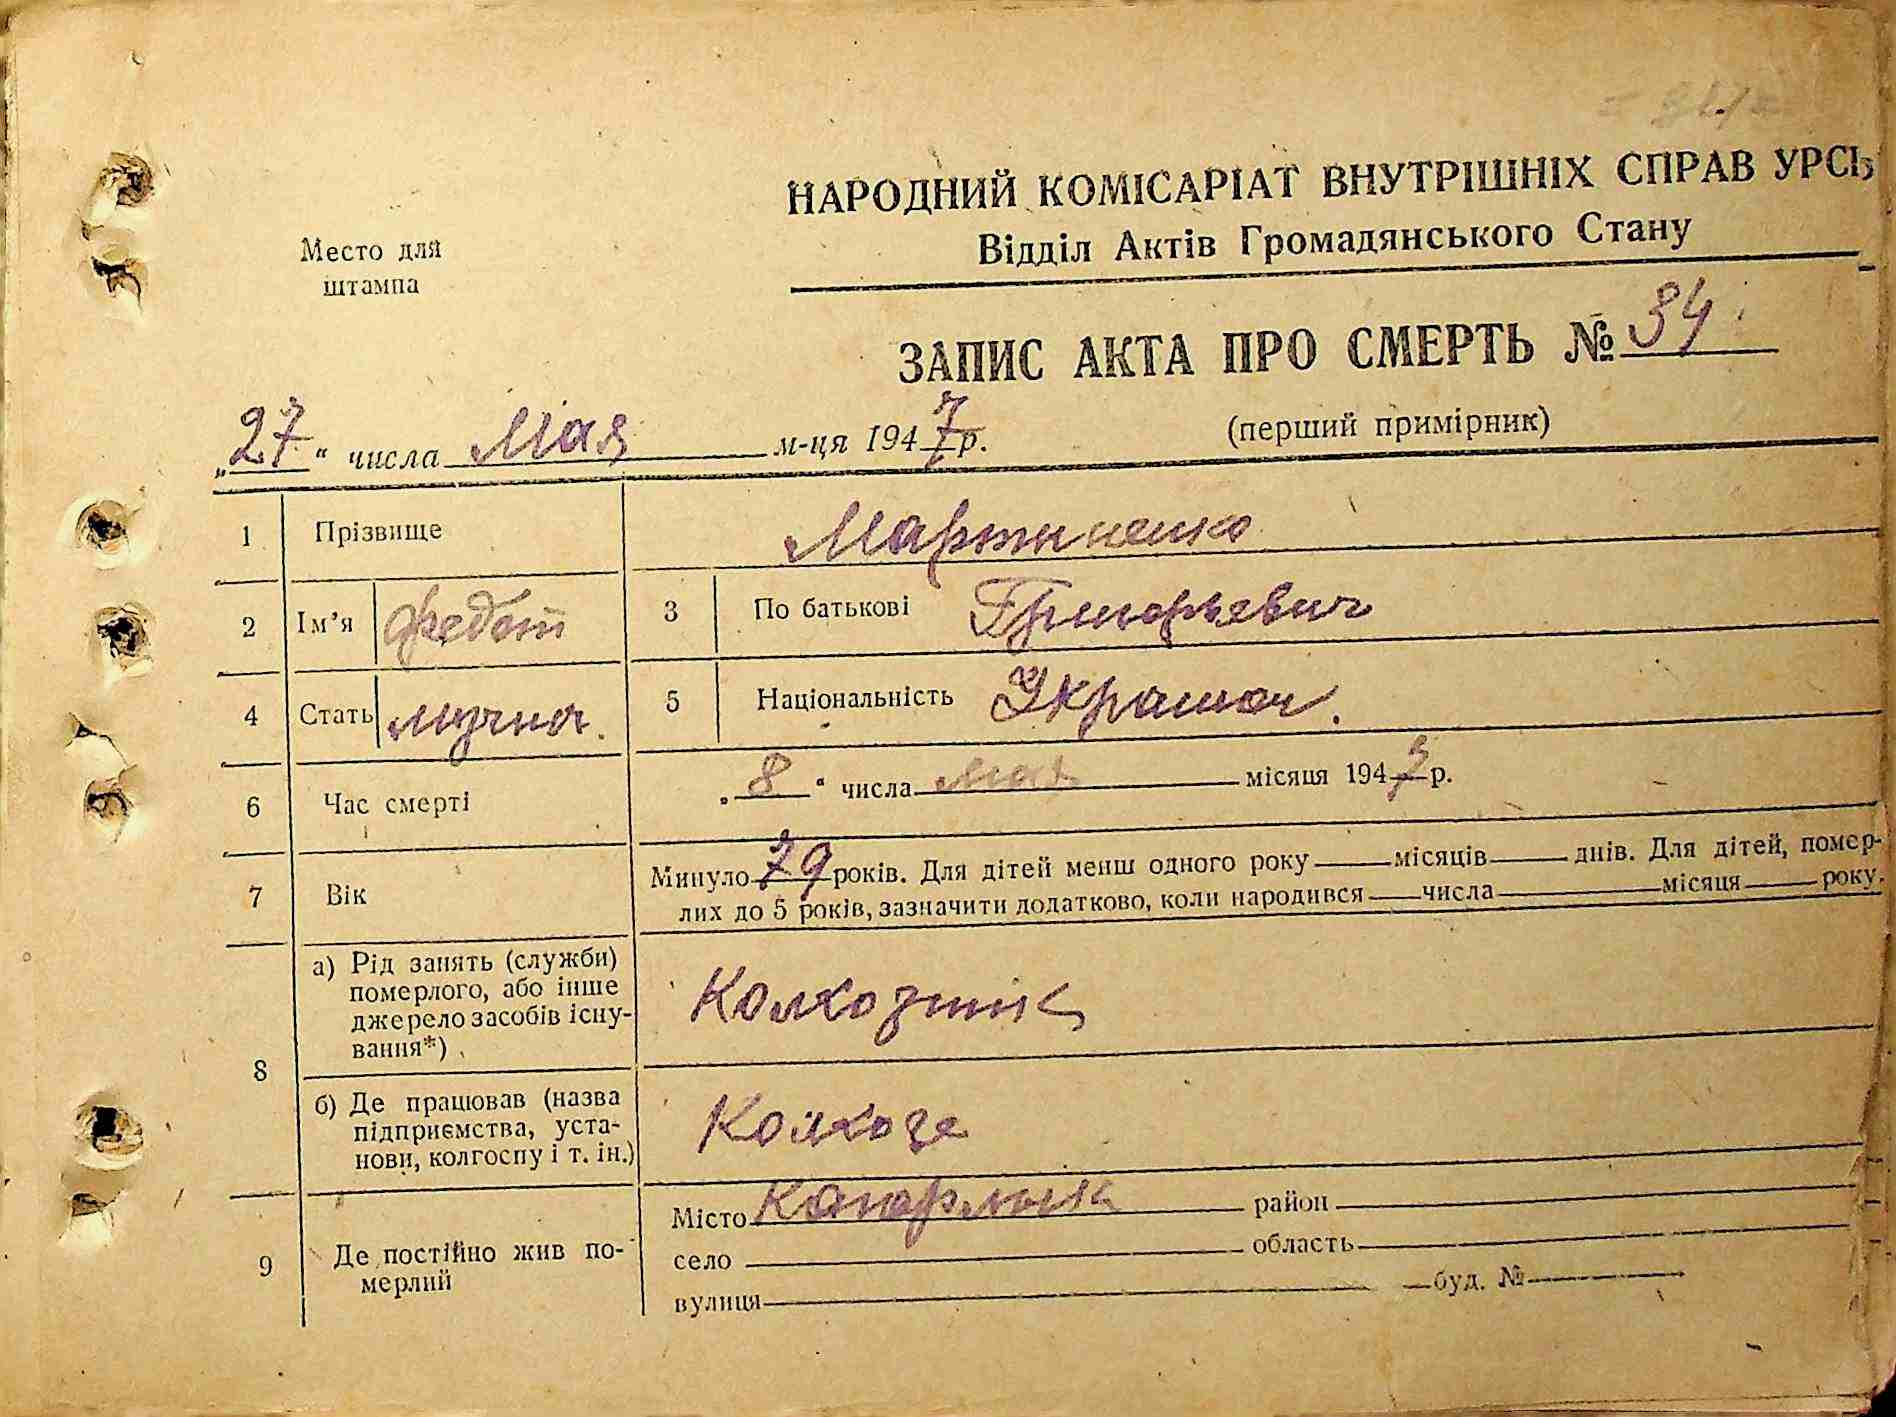 НАРОДНИЙ КОМІСАРІАТ ВНУТРІШНІХ СПРАВ УРСР
Відділ Актів Громадянського Стану
Место для
штампа
ЗАПИС АКТА ПРО СМЕРТЬ № 34
„27“ числа Мая м-ця 1947 р.
(перший примірник)
1 Прізвище Мартыненко
2 Ім’я Федот 3 По батькові Григорьевич
4 Стать мужчин. 5 Національність Украинец.
6 Час смерті „8“ числа мая місяця 1947 р.
7 Вік Минуло 79 років. Для дітей менш одного року — місяців — днів. Для дітей, помер-
лих до 5 років, зазначити додатково, коли народився — числа — місяця — року.
8 а) Рід занять (служби)
померлого, або інше
джерело засобів існу-
вання*)
Колхозник
б) Де працював (назва
підприємства, уста-
нови, колгоспу і т. ін.)
Колхозе
9 Де постійно жив по-
мерлий
Місто Кагарлык район
село область
вулиця буд. №